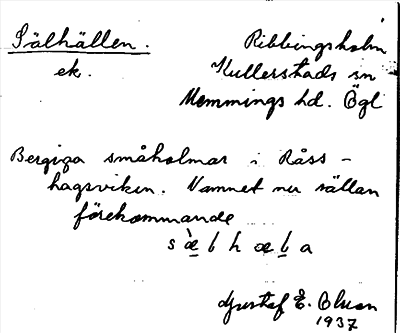 Sälhällen.
ek.
Ribbingsholm
Kullerstads sn
Memmings hd. Ögl
Bergiga småholmar i Råss-
hagsviken. Namnet nu sällan
förekommande
Gustaf E. Olson
1937